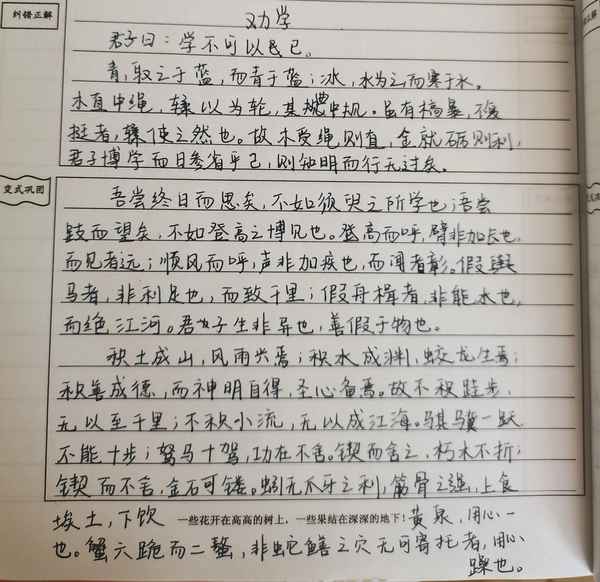 纠错正解
劝学
君子曰：学不可以已。
青，取之于蓝，而青于蓝；冰，水为之，而寒于水。
木直中绳，𫐓以为轮，其曲中规。虽有槁暴，不复
挺者，𫐓使之然也。故木受绳则直，金就砺则利，
君子博学而日参省乎己，则知明而行无过矣。
变式巩固
吾尝终日而思矣，不如须臾之所学也；吾尝
跂而望矣，不如登高之博见也。登高而呼，臂非加长也，
而见者远；顺风而呼，声非加疾也，而闻者彰。假舆
马者，非利足也，而致千里；假舟楫者，非能水也，
而绝江河。君子生非异也，善假于物也。
积土成山，风雨兴焉；积水成渊，蛟龙生焉；
积善成德，而神明自得，圣心备焉。故不积跬步，
无以至千里；不积小流，无以成江海。骐骥一跃
不能十步；驽马十驾，功在不舍。锲而舍之，朽木不折；
锲而不舍，金石可镂。蚓无爪牙之利，筋骨之强，上食
埃土，下饮 一些花开在高高的树上，一些果结在深深的地下! 黄泉，用心一
也。蟹六跪而二螯，非蛇鳝之穴无可寄托者，用心
躁也。